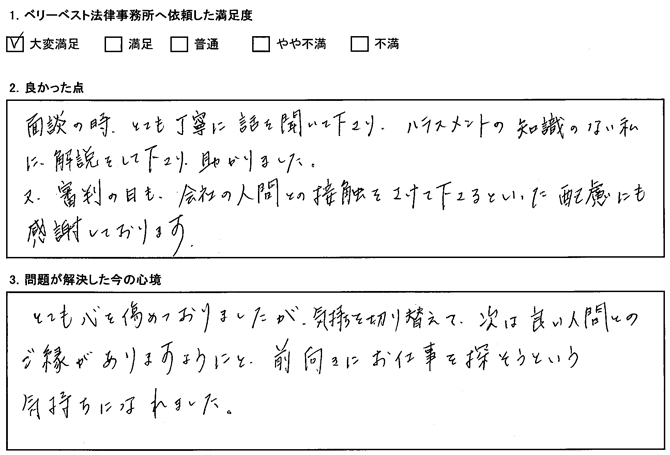 1. ベリーベスト法律事務所へ依頼した満足度
☑ 大変満足 □ 満足 □ 普通 □ やや不満 □ 不満
2. 良かった点
面談の時、とても丁寧に話を聞いて下さり、ハラスメントの知識のない私
に解説をして下さり、助かりました。
又、審判の日も、会社の人間との接触をさけて下さるといった配慮にも
感謝しております。
3. 問題が解決した今の心境
とても心を傷めておりましたが、気持を切り替えて、次は良い人間との
ご縁がありますようにと、前向きにお仕事を探そうという
気持ちになれました。